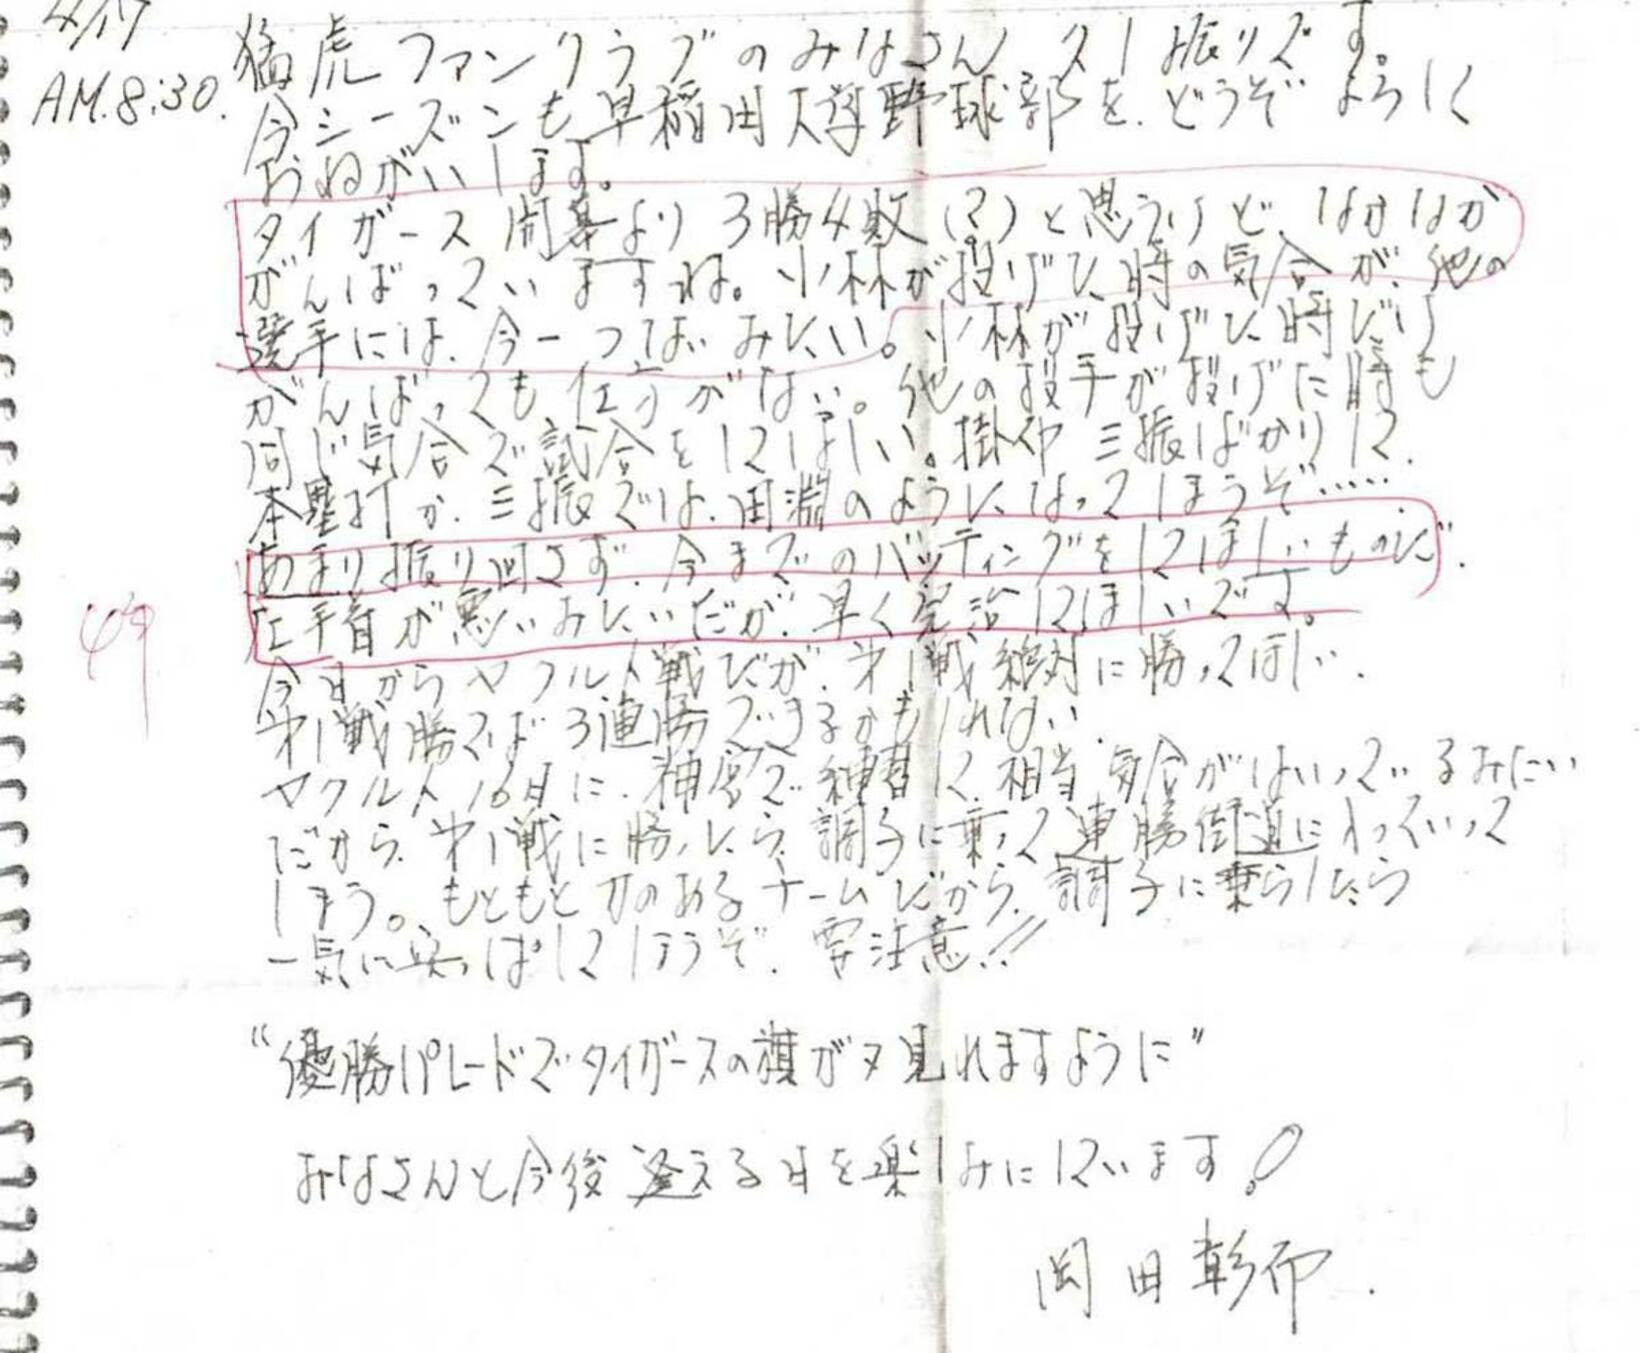 4/17
AM.8:30.
猛虎ファンクラブのみなさん 久し振りです。
今シーズンも早稲田大学野球部を、どうぞよろしく
おねがいします。
タイガース開幕より3勝4敗(?)と思うけど、なかなか
がんばっていますね。小林が投げた時の気合が、他の
選手には、今一つないみたい。小林が投げた時だけ
がんばっても仕方がない。他の投手が投げた時も
同じ気合で試合をしてほしい。掛布三振ばかりして、
本塁打か、三振では、田淵のようになってしまうぞ……
あまり振り回さず、今までのバッティングをしてほしいものだ。
左手首が悪いみたいだが、早く完治してほしいです。
今日からヤクルト戦だが、第1戦絶対に勝ってほしい。
第1戦勝てば3連勝できるかもしれない。
ヤクルト16日に、神宮で練習して、相当気合がはいっているみたい
だから、第1戦に勝ったら、調子に乗って連勝街道に入っていって
しまう。もともと力のあるチームだから、調子に乗らしたら
一気に突っぱしてしまうぞ、要注意!!
“優勝パレードでタイガースの旗が又見れますように”
みなさんと今後逢える日を楽しみにしています!
岡田彰布.